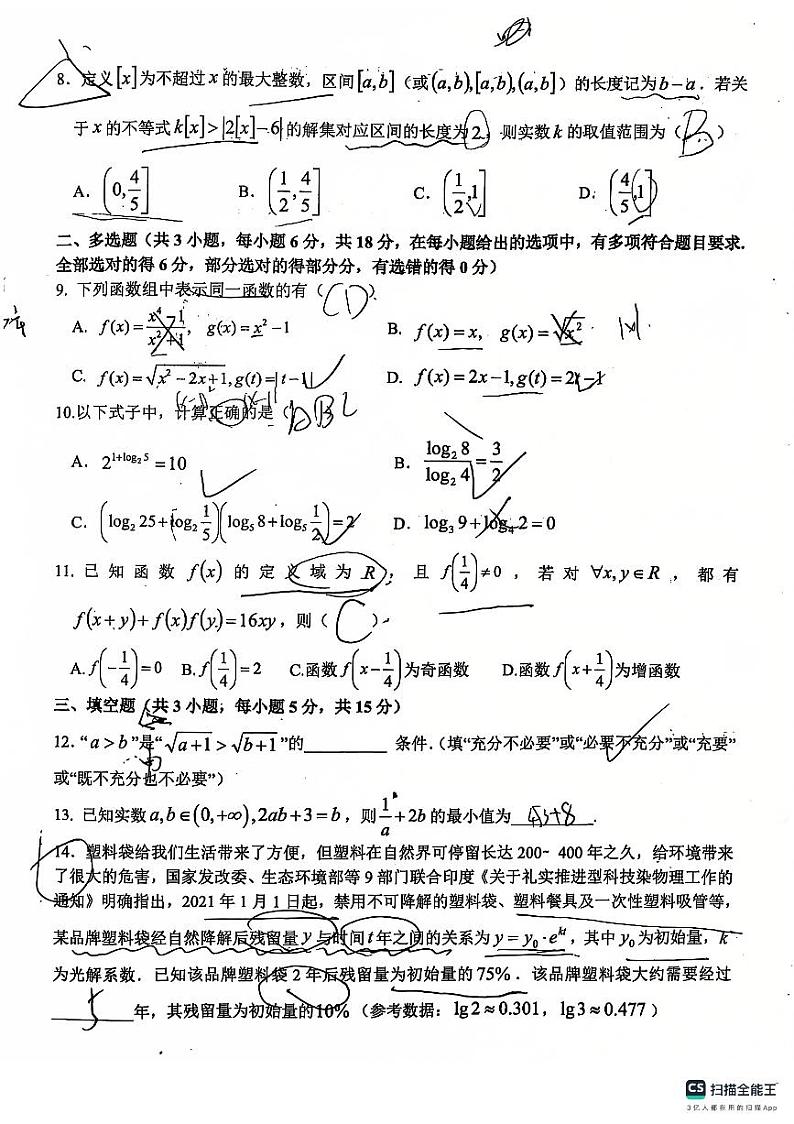 8. 定义[x]为不超过 x 的最大整数，区间[a,b]（或(a,b),[a,b),(a,b]）的长度记为b−a．若关
于 x 的不等式 k[x]>|2[x]−6| 的解集对应区间的长度为 2，则实数 k 的取值范围为（ B ）
A. (0,4/5] B. (1/2,4/5] C. (1/2,1] D. (4/5,1]
二、多选题（共 3 小题，每小题 6 分，共 18 分，在每小题给出的选项中，有多项符合题目要求.
全部选对的得 6 分，部分选对的得部分分，有选错的得 0 分）
9. 下列函数组中表示同一函数的有（ CD ）
A. f(x)=(x⁴−1)/(x²+1), g(x)=x²−1 B. f(x)=x, g(x)=√x² |x|
C. f(x)=√(x²−2x+1),g(t)=|t−1| D. f(x)=2x−1,g(t)=2t−1
10.以下式子中，计算正确的是（
A. 2^(1+log₂5)=10 B. log₂8/log₂4=3/2
C. (log₂25+log₂1/5)(log₅8+log₅1/2)=2 D. log₃9+log₄2=0
11. 已 知 函 数 f(x) 的 定 义 域 为 R ， 且 f(1/4)≠0 ， 若 对 ∀x,y∈R ， 都 有
f(x+y)+f(x)f(y)=16xy，则（ C ）
A.f(−1/4)=0 B.f(1/4)=2 C.函数f(x−1/4)为奇函数 D.函数f(x+1/4)为增函数
三、填空题（共 3 小题，每小题 5 分，共 15 分）
12. “a>b”是“√(a+1)>√(b+1)”的________ 条件.（填“充分不必要”或“必要不充分”或“充要”
或“既不充分也不必要”）
13. 已知实数a,b∈(0,+∞),2ab+3=b，则1/a+2b 的最小值为 ________.
14. 塑料袋给我们生活带来了方便，但塑料在自然界可停留长达 200~ 400 年之久，给环境带来
了很大的危害，国家发改委、生态环境部等 9 部门联合印度《关于礼实推进型科技染物理工作的
通知》明确指出，2021 年 1 月 1 日起，禁用不可降解的塑料袋、塑料餐具及一次性塑料吸管等，
某品牌塑料袋经自然降解后残留量 y 与时间 t 年之间的关系为 y=y₀·e^(kt)，其中 y₀ 为初始量，k
为光解系数．已知该品牌塑料袋 2 年后残留量为初始量的 75%．该品牌塑料袋大约需要经过
________年，其残留量为初始量的10%（参考数据：lg2≈0.301，lg3≈0.477）
CS 扫描全能王
3亿人都在用的扫描App